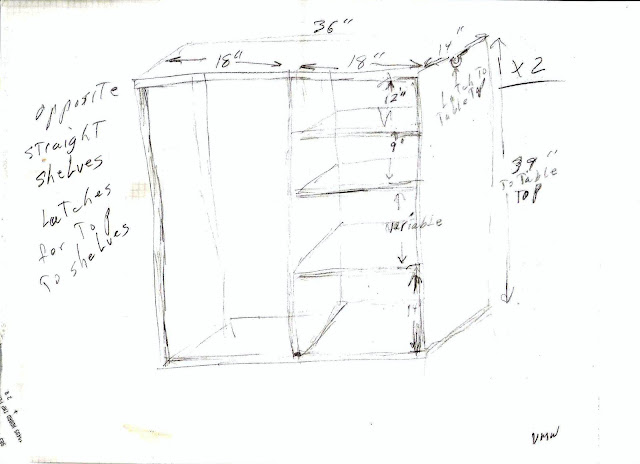 36"
18"
18"
14"
X2
12"
Latch To
Table Top
9"
39"
To Table
Top
variable
Opposite
straight
shelves
Latches
for Top
To shelves